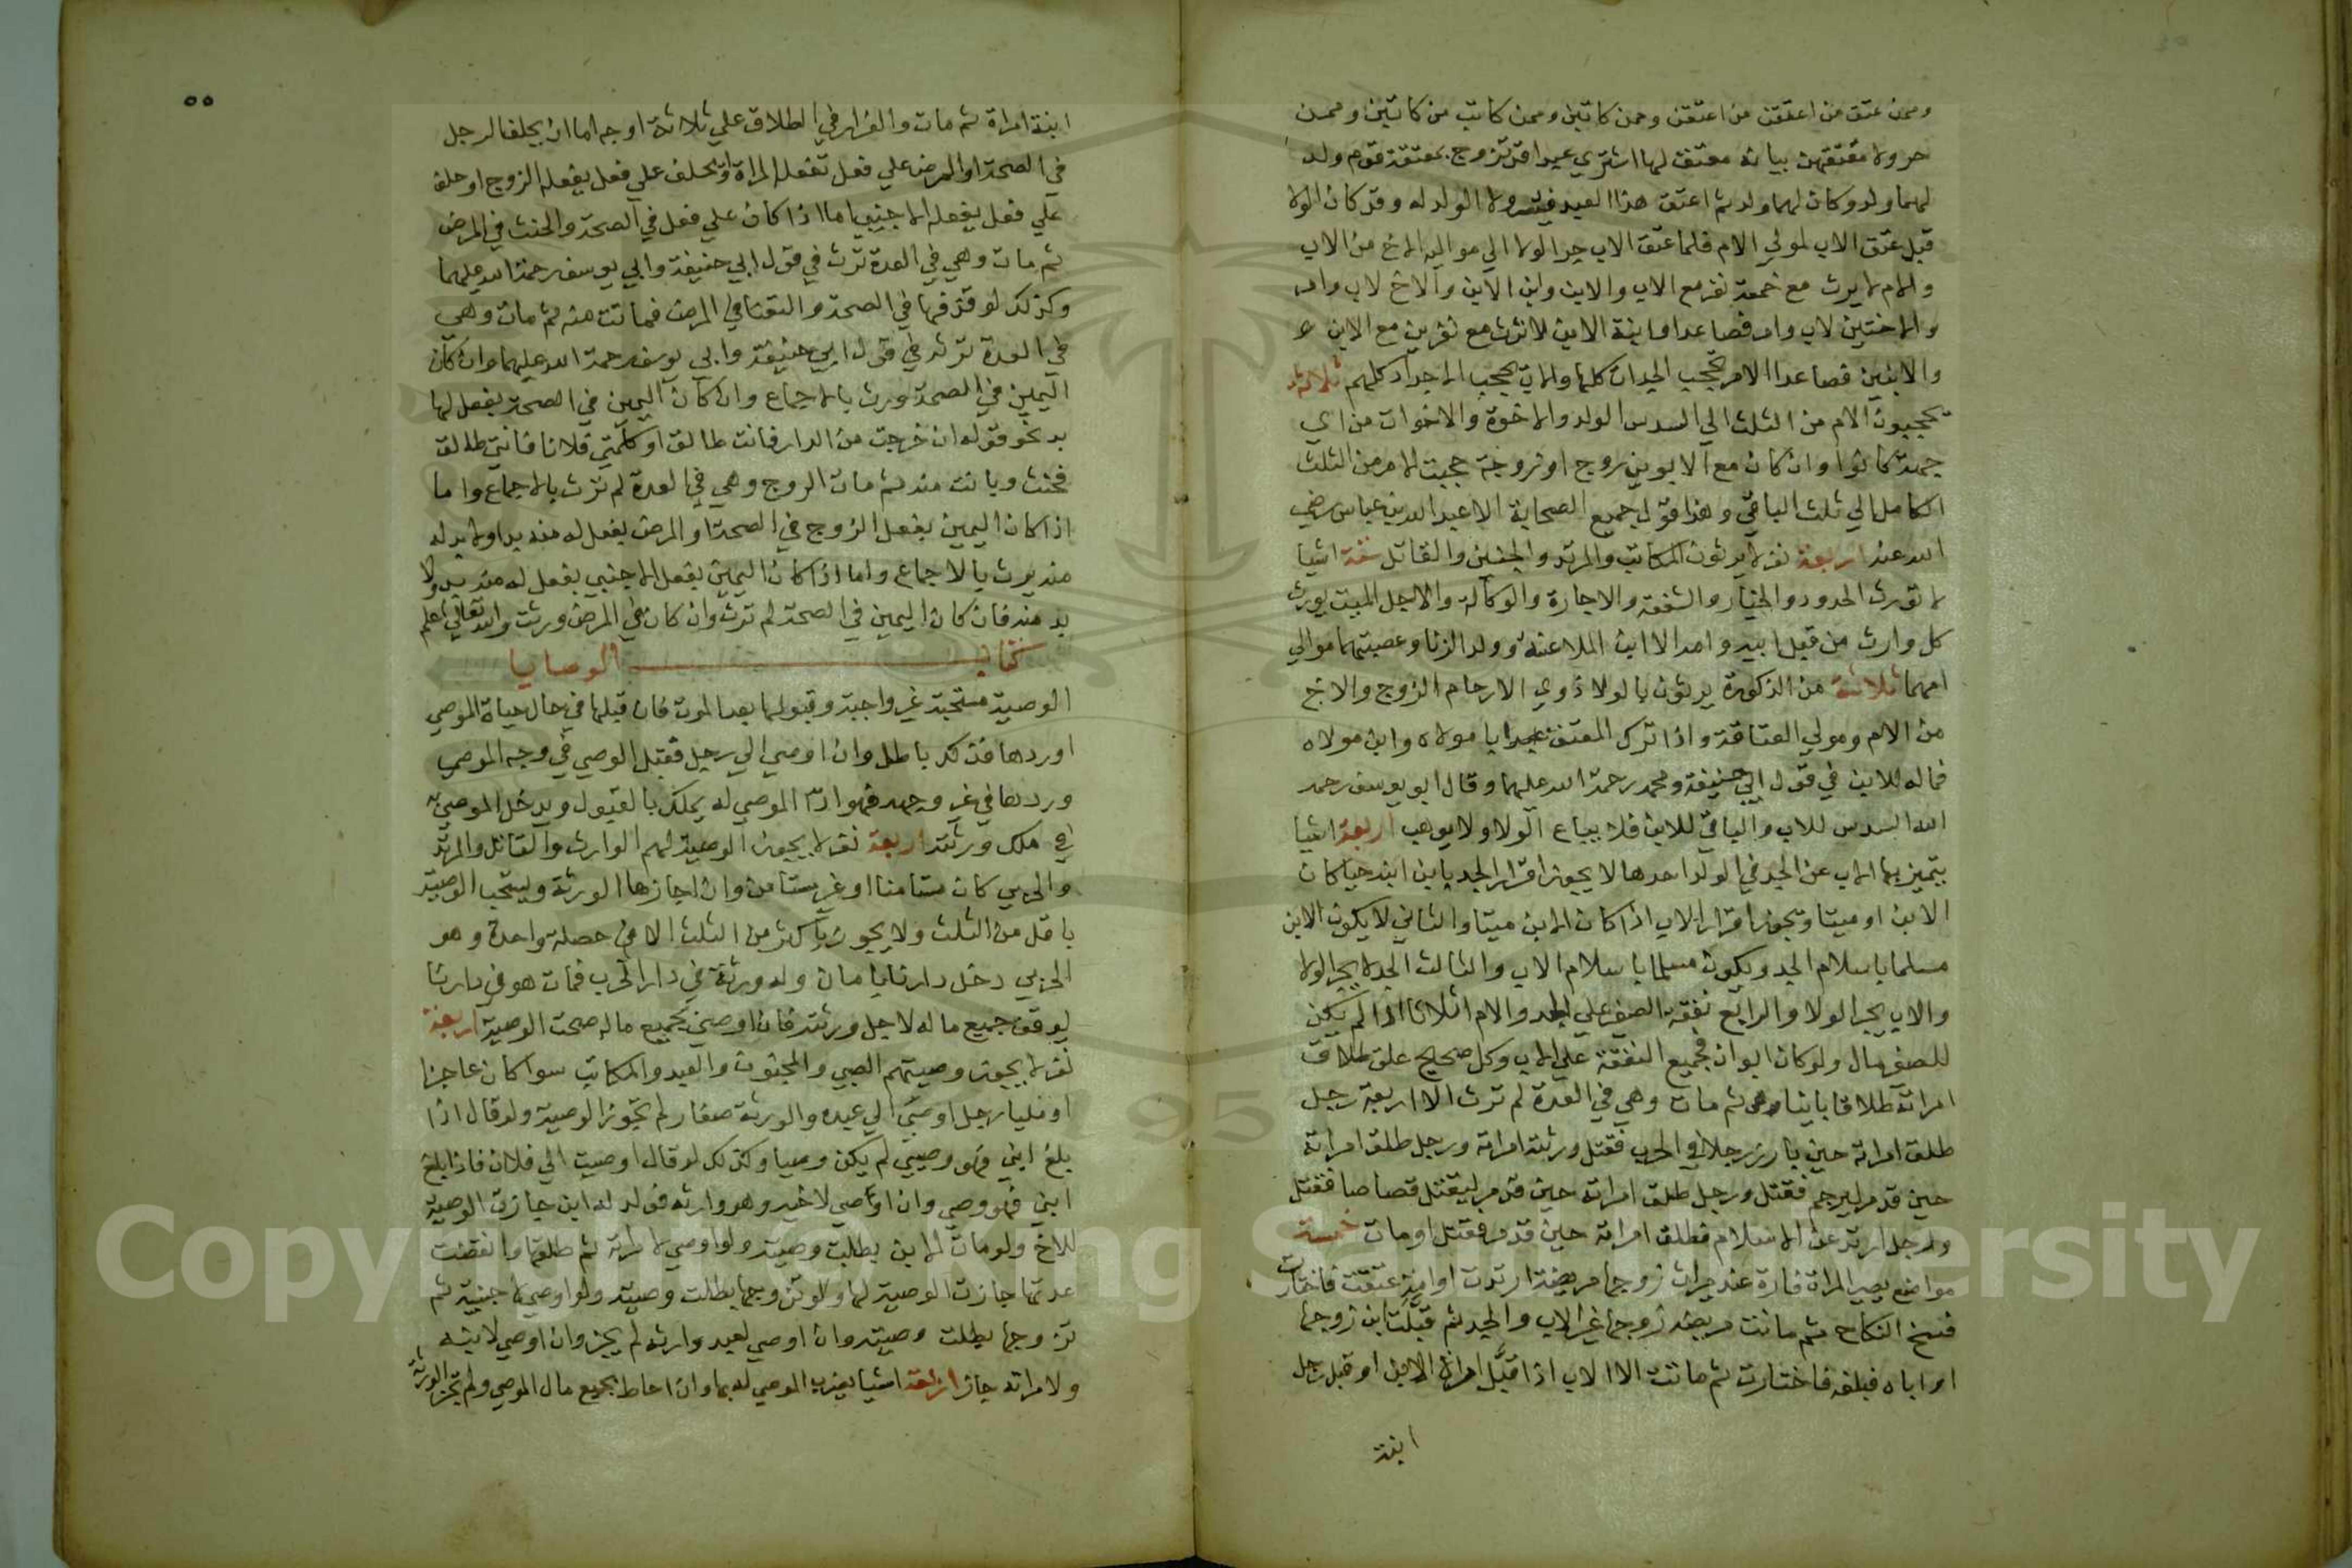 وممن عتق من اعتقن من اعتقن وممن كاتبن وممن كاتب من كاتبن وممن
جر ولاء معتقهن بيانه معتق لها اشتري عبدا قد تزوج بمعتقة قوم ولد
لهما ولد وكان لهما ولد ثم اعتق هذا العبد ولاء الولد له وقد كان الولا
قبل عتق الاب لمولي الام فلما عتق الاب جر الولا الي مواليه الاخ من الاب
والام لا يرث مع خمسة نفر مع الاب والابن وابن الابن والاخ لاب وام
والاختين لاب وام فصاعدا وابنة الابن لا ترث مع نفرين مع الابن
والابنتين فصاعدا الام تحجب الجدات كلها والاب يحجب الاجداد كلهم ثلاثة
يحجبون الام من الثلث الي السدس الولد والاخوة والاخوات من اي
جهة كانوا وان كان مع الابوين زوج او زوجة حجبت الام من الثلث
الكامل الي ثلث الباقي وهذا قول جميع الصحابة الا عبد الله بن عباس رضي
الله عنه اربعة نفر لا يرثون المكاتب والمرتد والجنين والقاتل ستة اشيا
لا تورث الحدود والخيار والشفعة والاجارة والوكالة والاجل الميت يورث
كل وارث من قبل ابيه وامه الا ابن الملاعنة وولد الزنا وعصبتهما موالي
امهما ثلاثة من الذكورة يرثون بالولا ذوي الارحام الزوج والاخ
من الام ومولي العتاقة واذا ترك المعتق ابا مولاه وابن مولاه
فماله للابن في قول ابي حنيفة ومحمد رحمة الله عليهما وقال ابو يوسف رحمه
الله السدس للاب والباقي للابن فلا يباع الولا ولا يوهب اربعة اشيا
يتميز بها الاب عن الجد في الولد احدها لا يجوز اقرار الجد بابن ابنه حيا كان
الابن او ميتا ويجوز اقرار الاب اذا كان الابن ميتا والثاني لا يكون الابن
مسلما باسلام الجد ويكون مسلما باسلام الاب والثالث الجد لا يجر الولا
والاب يجر الولا والرابع نفقة الصغير علي الجد والام اثلاثا اذا لم يكن
للصغير مال ولو كان ابوان فجميع النفقة علي الاب وكل صحيح علق طلاق
امراته طلاقا باينا ثم مات وهي في العدة لم ترث الا اربعة رجل
طلق امراته حين بارز رجلا في الحرب فقتل ورثته امراته ورجل طلق امراته
حين قدم ليرجم فقتل ورجل طلق امراته حين قدم ليقتل قصاصا فقتل
ورجل ارتد عن الاسلام فطلق امراته حين قدم فقتل او مات خمسة
مواضع يصير المراة فارة عند ميراث زوجها مريضة ارتدت او عتقت فاختارت
فسخ النكاح ثم ماتت مريضة زوجها غير الاب والجد ثم قبلت ابن زوجها
او اباه فبلغه فاختارت ثم ماتت الا الاب اذا قبل امراة الابن او قبل رجل
ابنة
٥٥
ابنة امراة ثم مات والفرار في الطلاق علي ثلاثة اوجه اما ان يحلف الرجل
في الصحة او المرض علي فعل تفعله المراة او يحلف علي فعل يفعله الزوج او حلف
علي فعل يفعله الاجنبي اما اذا كان علي فعل في الصحة والحنث في المرض
ثم مات وهي في العدة ترث في قول ابي حنيفة وابي يوسف رحمة الله عليهما
وكذلك لو قذفها في الصحة والتعنا في المرض فبانت منه ثم مات وهي
في العدة ترثه في قول ابي حنيفة وابي يوسف رحمة الله عليهما وان كان
اليمين في الصحة ورث بالاجماع وان كان اليمين في الصحة بفعل لها
بد نحو قوله ان خرجت من الدار فانت طالق او كلمتي فلانا فانتي طالق
فحنث وبانت منه ثم مات الزوج وهي في العدة لم ترث بالاجماع واما
اذا كان اليمين بفعل الزوج في الصحة او المرض بفعل له منه بد او لا بد له
منه يرث بالاجماع واما اذا كان اليمين بفعل الاجنبي بفعل له منه بد ولا
بد منه فان كان اليمين في الصحة لم ترث وان كان في المرض ورثت والله تعالي اعلم
كتاب الوصايا
الوصية مستحبة غير واجبة وقبولها بعد الموت فان قبلها في حال حياة الموصي
او ردها فذلك باطل وان اوصي الي رجل فقبل الوصي في وجه الموصي
وردها في غير وجهه فهو اذا الموصي له يملك بالقبول ويدخل الموصي به
في ملك ورثته اربعة نفر لا يجوز الوصية لهم الوارث والقاتل والمرتد
والحربي كان مستامنا او غير مستامن وان اجازها الورثة ويستحب الوصية
باقل من الثلث ولا يجوز باكثر من الثلث الا في خصلة واحدة وهو
الحربي دخل دارنا بامان وله ورثة في دار الحرب فمات هو في دارنا
يوقف جميع ماله لاجل ورثته فان اوصي بجميع ماله صحت الوصية اربعة
نفر لا يجوز وصيتهم الصبي والمجنون والعبد والمكاتب سوا كان عاجزا
او مليا رجل اوصي الي عبده والورثة صغار لم يجوز الوصية ولو قال اذا
بلغ ابني فهو وصيي لم يكن وصيا وكذلك لو قال اوصيت الي فلان فاذا بلغ
ابني فهو وصي وان اوصي لاخيه وهو وارثه فولد له ابن جازت الوصية
للاخ ولو مات الابن بطلت وصيته ولو اوصي لامراته ثم طلقها وانقضت
عدتها جازت الوصية لها ولو تزوجها بطلت وصيته ولو اوصي لاجنبية ثم
تزوجها بطلت وصيته وان اوصي لعبد وارثه لم يجز وان اوصي لابنه
ولامراته جاز اربعة اشيا يضرب الموصي له بها وان احاط بجميع مال الموصي ولم تجز الورثة
Copyright © King Saud University